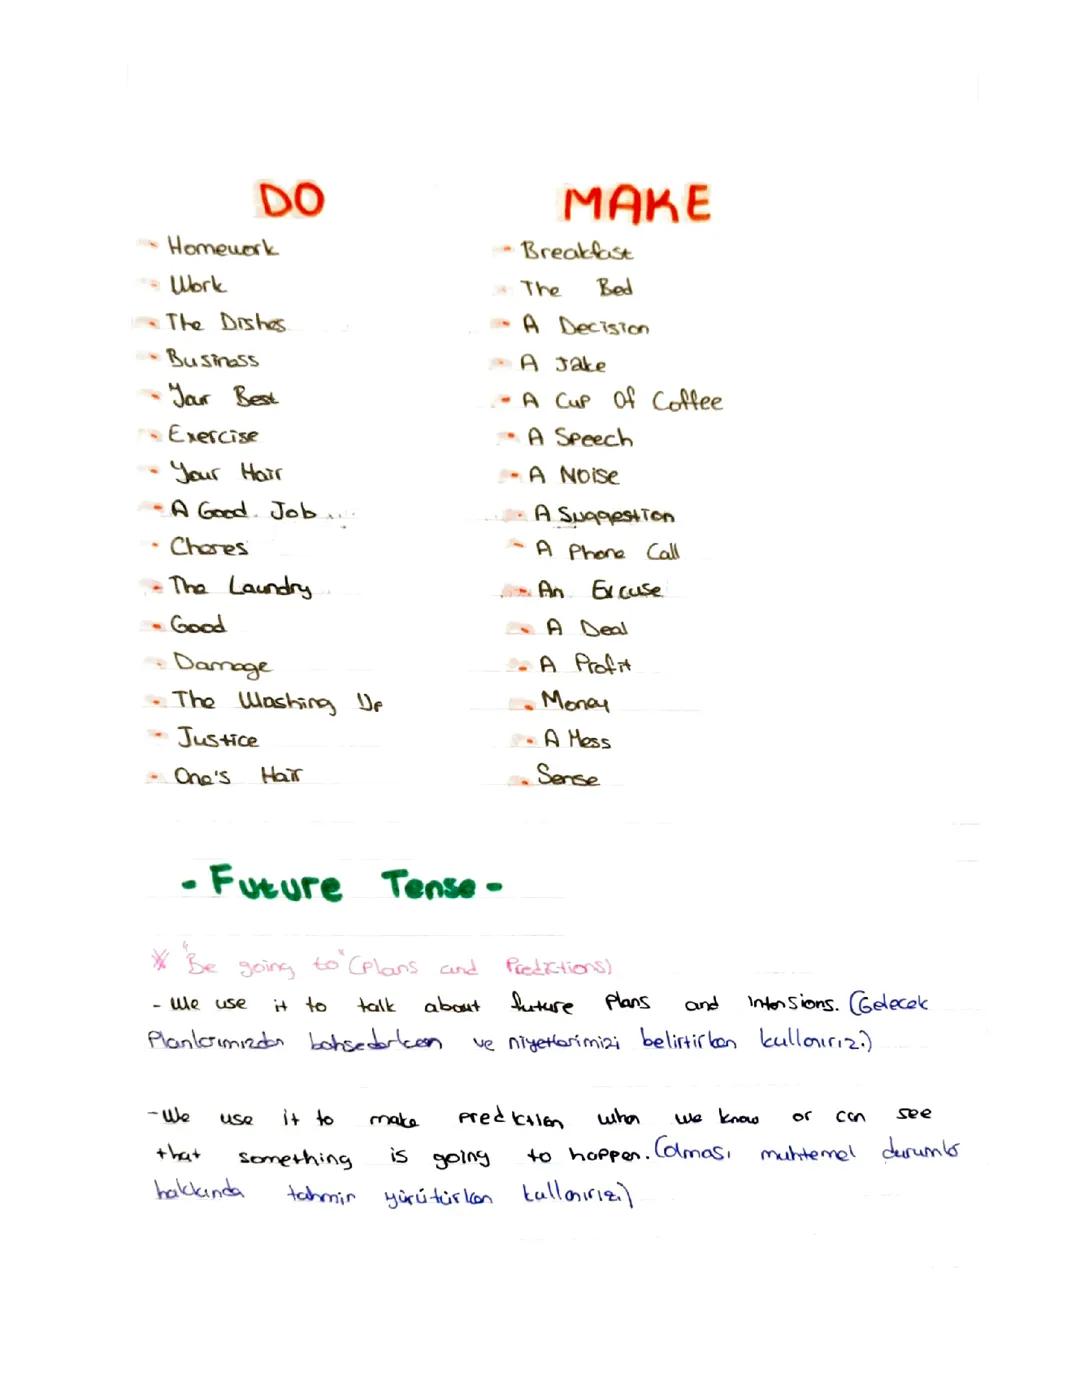 DO
Homework
Work
The Dishes
Business
Your Best
Exercise
Your Hair
A Good Job
Chores
The Laundry
Good
Damage
The Washing Up
Justice
One's Hair
MAKE
Breakfast
The Bed
A Decision
A Jake
A Cup Of Coffee
A Speech
A Noise
A Suggestion
A Phone Call
An Excuse
A Deal
A Profit
Money
A Mess
Sense
- Future Tense -
* "Be going to" (Plans and Predictions)
- We use it to talk about future plans and intensions. (Gelecek
Planlarımızdan bahsederken ve niyetlerimizi belirtirken kullanırız.)
- We use it to make prediction when we know or can see
that something is going to happen. (Olması muhtemel durumlar
hakkında tahmin yürütürken kullanırız.)